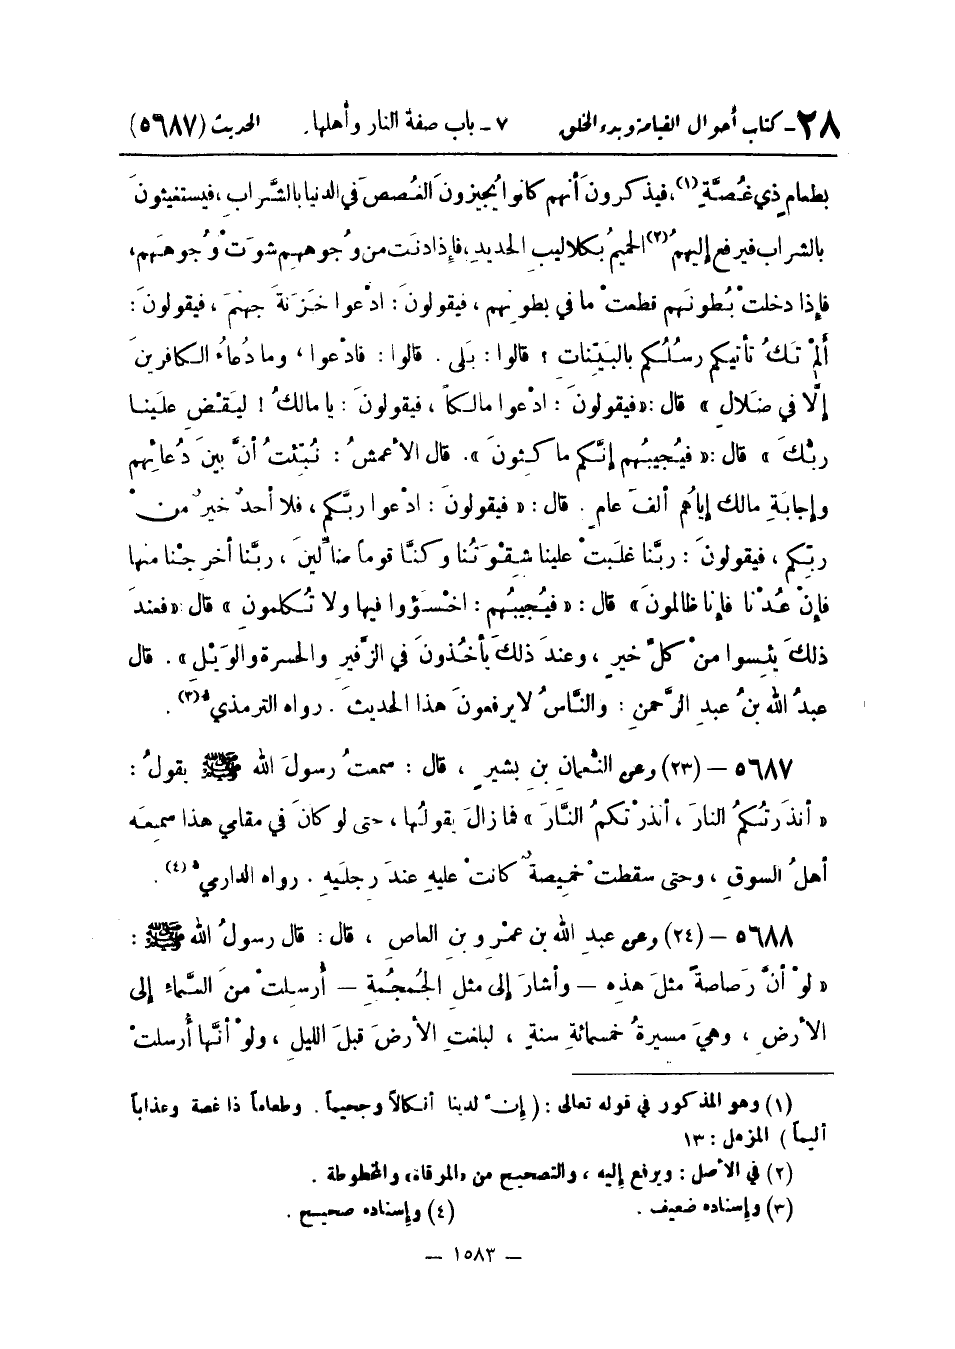 ٢٨ - كتاب أحوال القيامة وبدء الخلق ٧ - باب صفة النار وأهلها. الحديث (٥٦٨٧)
بطعامٍ ذي غُصَّةٍ(١)، فيذكرونَ أنهم كانوا يُجيزونَ الغُصصَ في الدنيا بالشَّرابِ، فيستغيثونَ
بالشراب فيرفع إليهمُ(٢) الحميمُ بكلاليبِ الحديدِ، فإذا دنَت من وُجوههِم شوَتْ وُجوهَهم،
فإذا دخلتْ بُطونَهم قطعتْ ما في بطونِهم، فيقولونَ: ادْعوا خَزَنةَ جهنمَ، فيقولونَ:
ألمْ تَكُ تأتيكم رسُلُكم بالبَيِّناتِ؟ قالوا: بَلى. قالوا: فادْعوا، وما دُعاءُ الكافرينَ
إلَّا في ضَلالٍ» قال: «فيقولونَ: ادعوا مالكاً، فيقولونَ: يا مالكُ! ليَقْضِ علَينا
ربُّكَ» قال: «فيُجيبُهم إنَّكم ماكثونَ». قال الأعمشُ: نُبِّئتُ أنَّ بينَ دُعائِهم
وإجابةِ مالك إياهُم ألفَ عامٍ. قال: «فيقولونَ: ادْعوا ربَّكم، فلا أحدٌ خيرٌ منْ
ربِّكم، فيقولونَ: ربَّنا غلبَتْ علينا شِقْوَتُنا وكنَّا قوماً ضالِّينَ، ربَّنا أخرجْنا منها
فإنْ عُدْنا فإنا ظالمونَ» قال: «فيُجيبُهم: اخْسَؤوا فيها ولا تُكلمون» قال: «فعندَ
ذلكَ يئِسوا منْ كلِّ خيرٍ، وعندَ ذلكَ يأخُذونَ في الزَّفيرِ والحسرةِ والوَيْلِ». قال
عبدُ الله بنُ عبدِ الرَّحمنِ: والنَّاسُ لا يرفعونَ هذا الحديثَ. رواه الترمذي(٣).
٥٦٨٧ - (٢٣) وعن النُّعمانِ بنِ بشيرٍ، قال: سمعتُ رسولَ الله ﷺ يقولُ:
«أنذَرتُكمُ النارَ، أنذرْتكمُ النَّارَ» فما زالَ يقولُها، حتى لو كانَ في مقامي هذا سمِعَه
أهلُ السوقِ، وحتى سقطتْ خميصةٌ كانتْ عليهِ عندَ رجلَيهِ. رواه الدارمي(٤).
٥٦٨٨ - (٢٤) وعن عبدِ الله بن عمْرِو بنِ العاصِ، قال: قال رسولُ الله ﷺ:
«لوْ أنَّ رَصاصةً مثلَ هذه — وأشارَ إلى مثلِ الجُمجُمةِ — أُرسلتْ منَ السَّماءِ إلى
الأرضِ، وهيَ مسيرةُ خمسمائةِ سنةٍ، لبلغتِ الأرضَ قبلَ الليلِ، ولوْ أنَّها أُرسلتْ
(١) وهو المذكور في قوله تعالى: (إن لدينا أنكالاً وجحيماً. وطعاماً ذا غصة وعذاباً
أليماً) المزمل: ١٣
(٢) في الأصل: ويرفع إليه، والتصحيح من «المرقاة» والمخطوطة.
(٣) وإسناده ضعيف. (٤) وإسناده صحيح.
— ١٥٨٣ —